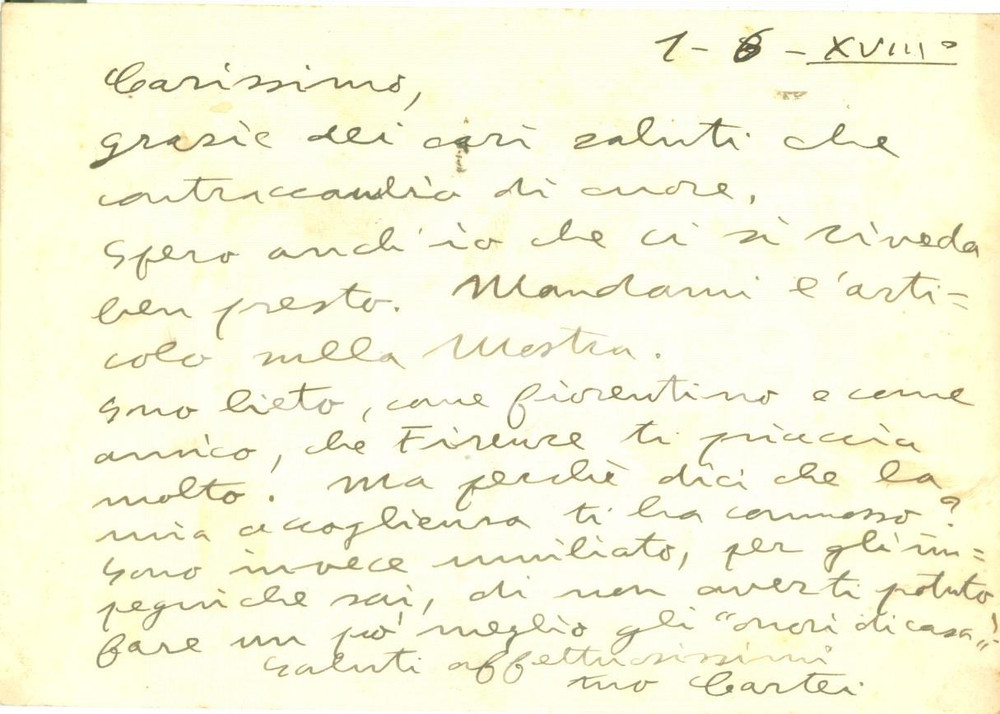 1 - 6 - XVIII°
Carissimo,
grazie dei cari saluti che
contraccambio di cuore.
Spero anch'io che ci si riveda
ben presto. Mandami l'arti=
colo sulla Mostra.
Sono lieto, come fiorentino e come
amico, che Firenze ti piaccia
molto. Ma perchè dici che la
mia accoglienza ti ha commosso?
Sono invece umiliato, per gli im=
pegni che sai, di non averti potuto
fare un po' meglio gli "onori di casa"!
Saluti affettuosissimi
tuo Cartei